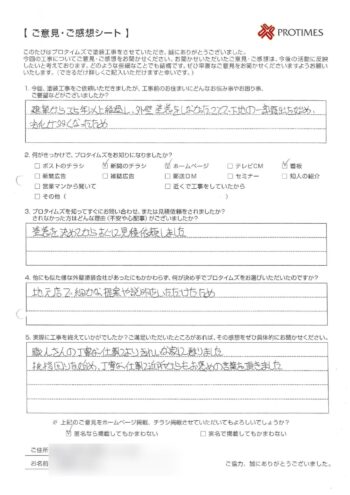 【 ご意見・ご感想シート 】
PROTIMES
このたびはプロタイムズで塗装工事をさせていただき、誠にありがとうございました。
今回の工事についてご意見・ご感想をお聞かせください。お聞かせいただいたご意見・ご感想は、今後の活動に反映
したいと考えております。どのような些細なことでも結構です。ぜひ率直なご意見をお聞かせくださいますようお願い
いたします。（できるだけ詳しくご記入いただけますと幸いです。）
1. 今回、塗装工事をご依頼いただきましたが、工事前のお住まいにどんなお悩み事やお困り事、
ご要望などがございましたか？
建築から25年以上経過し、外壁塗装をしなかったことで下地の一部露出を始め、
2. 何がきっかけで、プロタイムズをお知りになりましたか？
□ ポストのチラシ ☑ 新聞のチラシ ☑ ホームページ □ テレビCM ☑ 看板
□ 新聞広告 □ 雑誌広告 □ 郵送DM □ セミナー □ 知人の紹介
□ 営業マンから聞いて □ 近くで工事をしていたから
□ その他（ ）
3. プロタイムズを知ってすぐにお問い合わせ、または見積依頼をされましたか？
されなかった方はどんな理由（不安や心配事）がございましたか？
塗装を決めてからすぐに見積依頼しました
4. 他にも似た様な外壁塗装会社があったにもかかわらず、何が決め手でプロタイムズをお選びいただいたのですか？
地元店で細かな提案や説明をいただけたため
5. 実際に工事を終えていかがでしたか？ご満足いただいたところがあれば、その感想をぜひ具体的にお聞かせください。
職人さんの丁寧な仕事によりきれいな家に甦りました
挨拶回りを始め、丁寧な仕事に近所からもお褒めの言葉を頂きました
※ 上記のご意見をホームページ掲載、チラシ掲載させていただいてもよろしいでしょうか？
☑ 匿名なら掲載してもかまわない □ 実名で掲載してもかまわない
ご住所
お名前
ご協力、誠にありがとうございました。